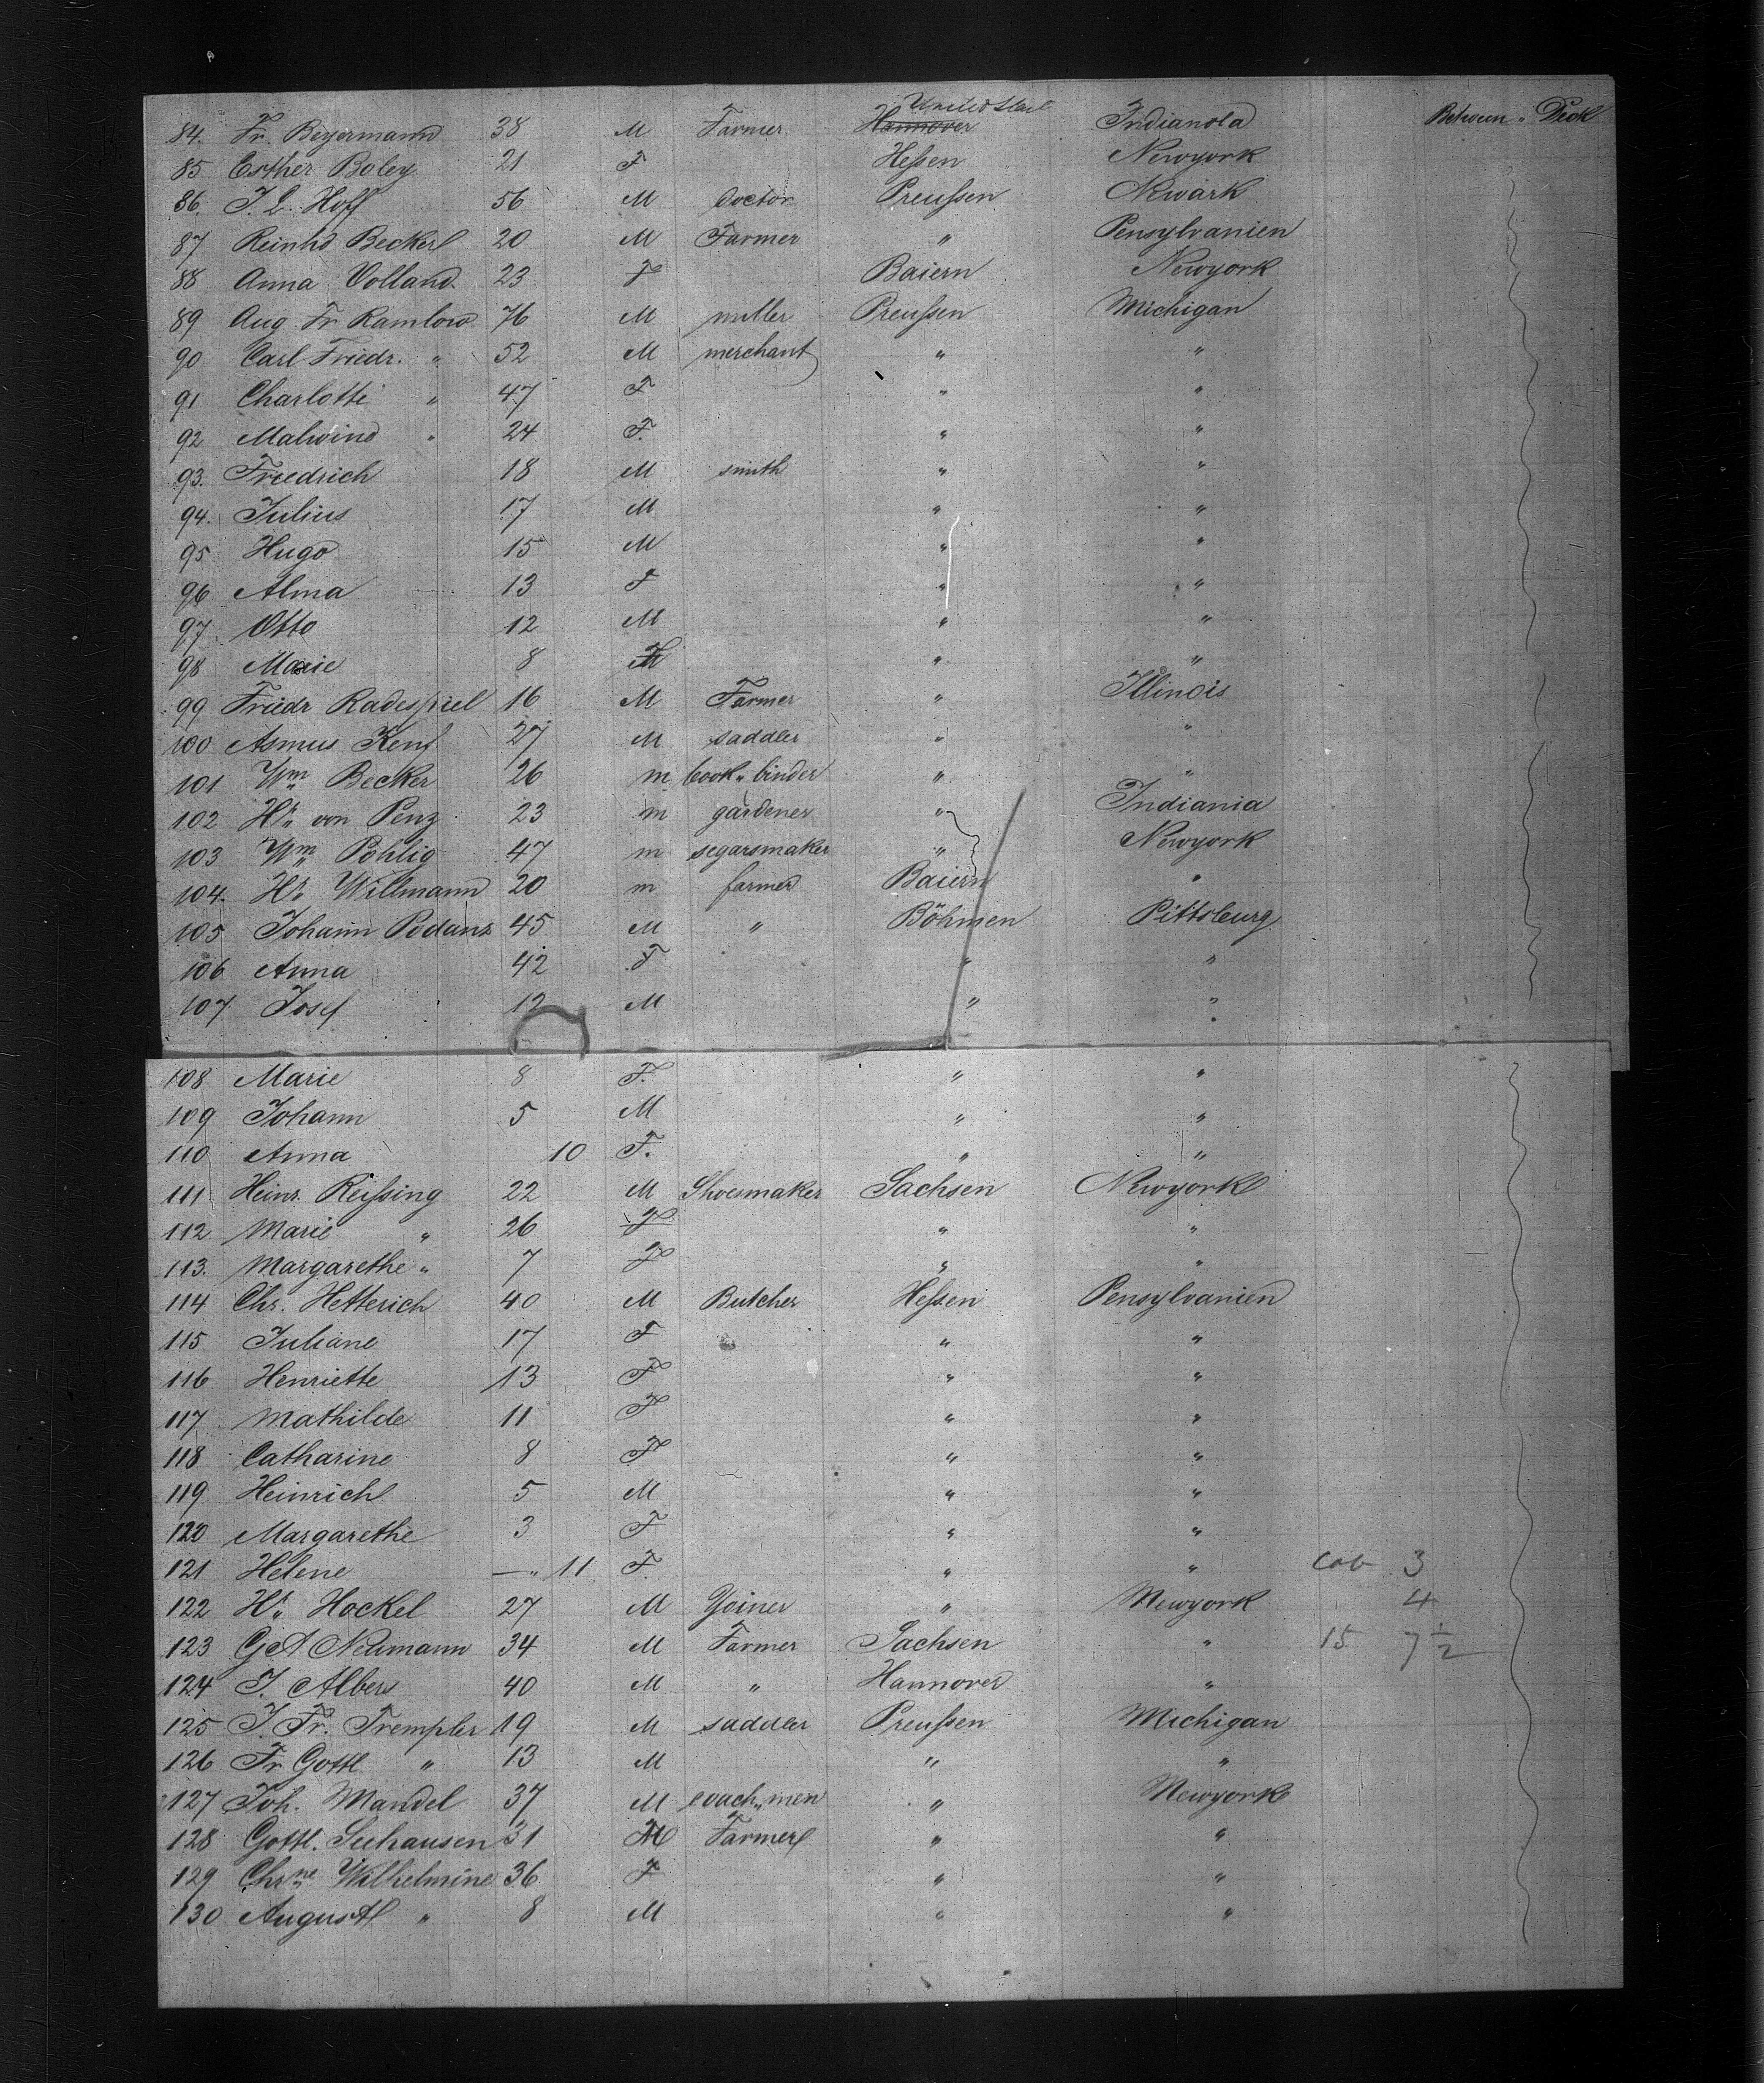 84. Fr. Beyermann 38 M Farmer Hannover United Stat. Indianola Between " Deck
85 Esther Boley 21 F Hessen Newyork
86. J. L. Hoff 56 M Doctor Preussen Newark
87 Reinhd Beckerl 20 M Farmer " Pensylvanien
88 Anna Volland 23 F Baiern Newyork
89 Aug. Fr. Ramlow 76 M miller Preussen Michigan
90 Carl Friedr. " 52 M merchant " "
91 Charlotte " 47 F " "
92 Malwind " 24 F. " "
93. Friedrich 18 M smith " "
94. Julius 17 M " "
95 Hugo 15 M " "
96 Alma 13 F " "
97. Otto 12 M " "
98 Marie 8 F " "
99 Friedr Radespiel 16 M Farmer " Illinois
100 Asmus Kent 27 M saddler " "
101 Wm Becker 26 m book " binder " "
102 Hr. von Penz 23 m gardener " Indiania
103 Wm Pohlig 47 m segarsmaker " Newyork
104. Hr. Willmann 20 m farmer Baiern "
105 Johann Podanz 45 M " Böhmen Pittsburg
106 Anna 42 F " "
107 Josef 12 M " "
108 Marie 8 F. " "
109 Johann 5 M " "
110 Anna 10 F. " "
111 Heinr. Reissing 22 M Shoesmaker Sachsen Newyork
112 Marie " 26 F " "
113. Margarethe " 7 F " "
114 Chr. Hetterich 40 M Butcher Hessen Pensylvanien
115 Juliane 17 F " "
116 Henriette 13 F " "
117 Mathilde 11 F " "
118 Catharine 8 F " "
119 Heinrich 5 M " "
120 Margarethe 3 F " "
121 Helene — " 11 F. " " 3
122 Hr. Hockel 27 M Yoiner " Newyork 4
123 G A Neumann 34 M Farmer Sachsen " 15 7 1/2
124 J. Albers 40 M " Hannover "
125 J. Fr. Trempler 19 M saddler Preussen Michigan
126 Fr Gottl " 13 M " "
127 Joh. Mandel 37 M coach " men " Newyork
128 Gottl. Seehausen 31 M Farmer " "
129 Chrne Wilhelmine 36 F " "
130 August " 8 M " "